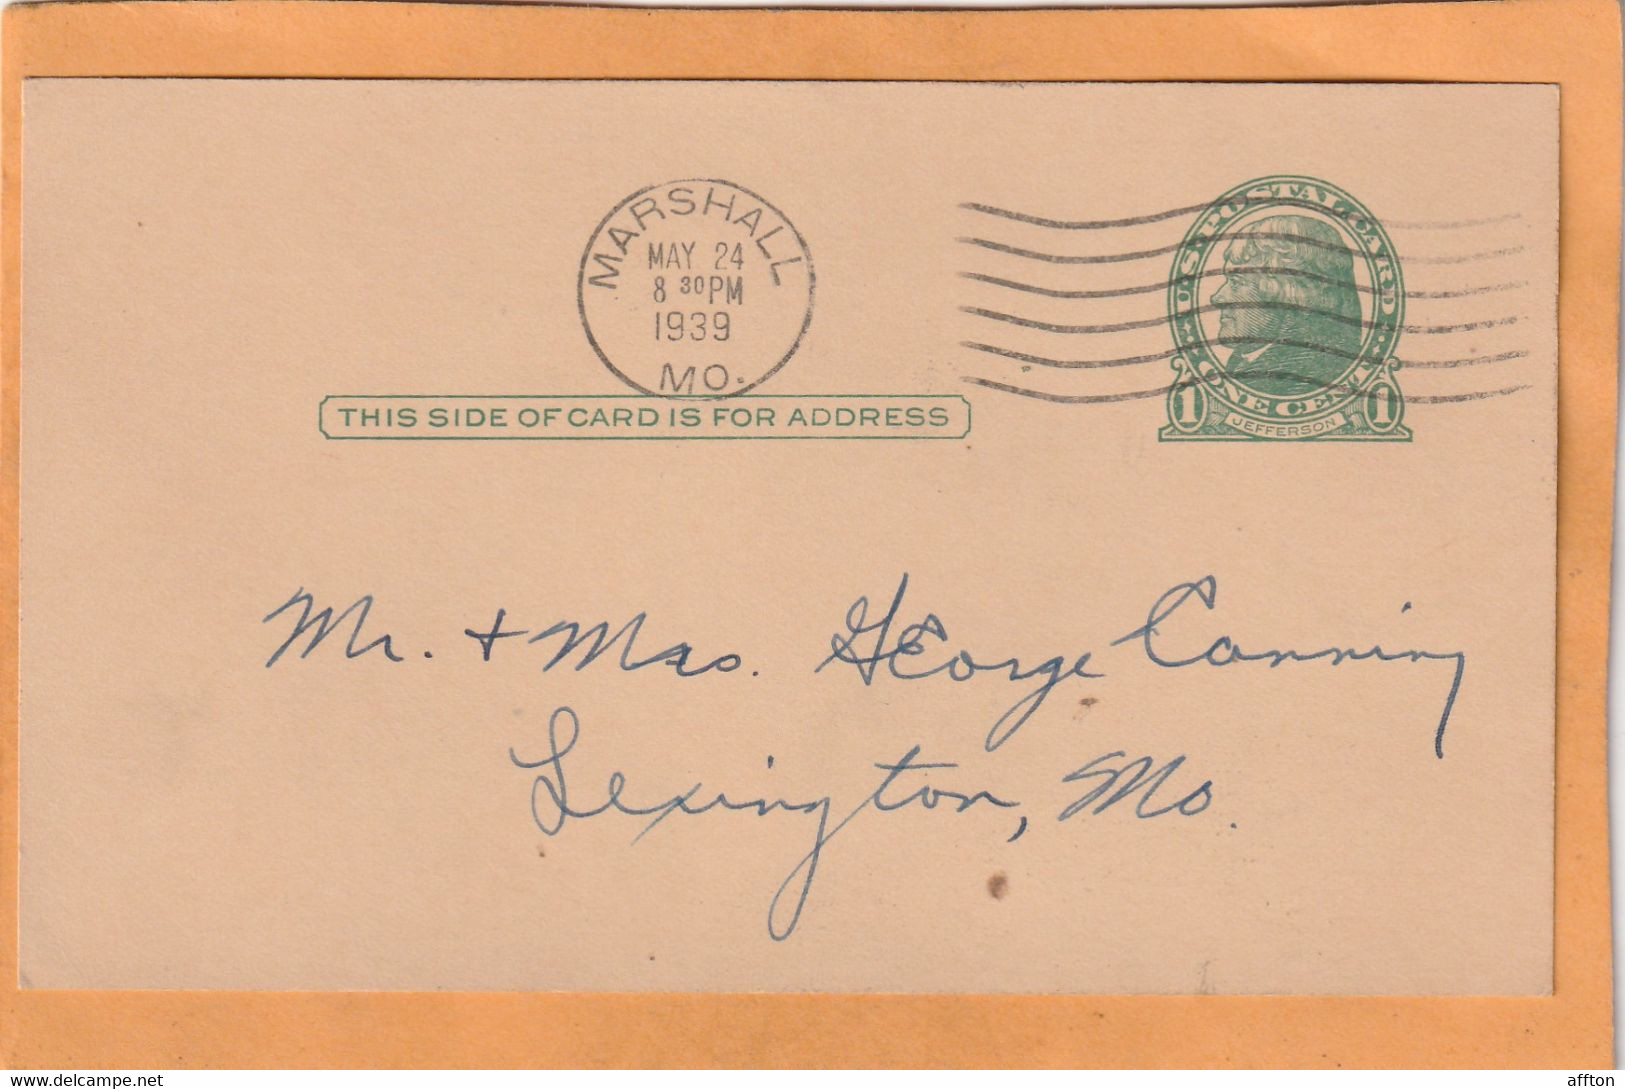 MARSHALL
MAY 24
8 30 PM
1939
MO.
U.S. POSTAL CARD
ONE CENT
1 1
JEFFERSON
THIS SIDE OF CARD IS FOR ADDRESS
Mr. + Mrs. George Canning
Lexington, Mo.
delcampe.net
affton